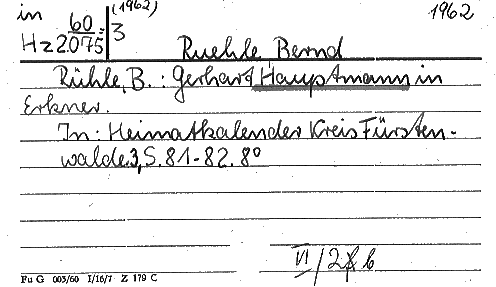 in (1962) 1962
60:
Hz2075 3
Ruehle Bernd
Rühle, B.: Gerhart Hauptmann in
Erkner.
In: Heimatkalender Kreis Fürsten-
walde.3, S. 81-82. 8°
VI/2
Fu G 003/60 I/16/7 Z 179 C